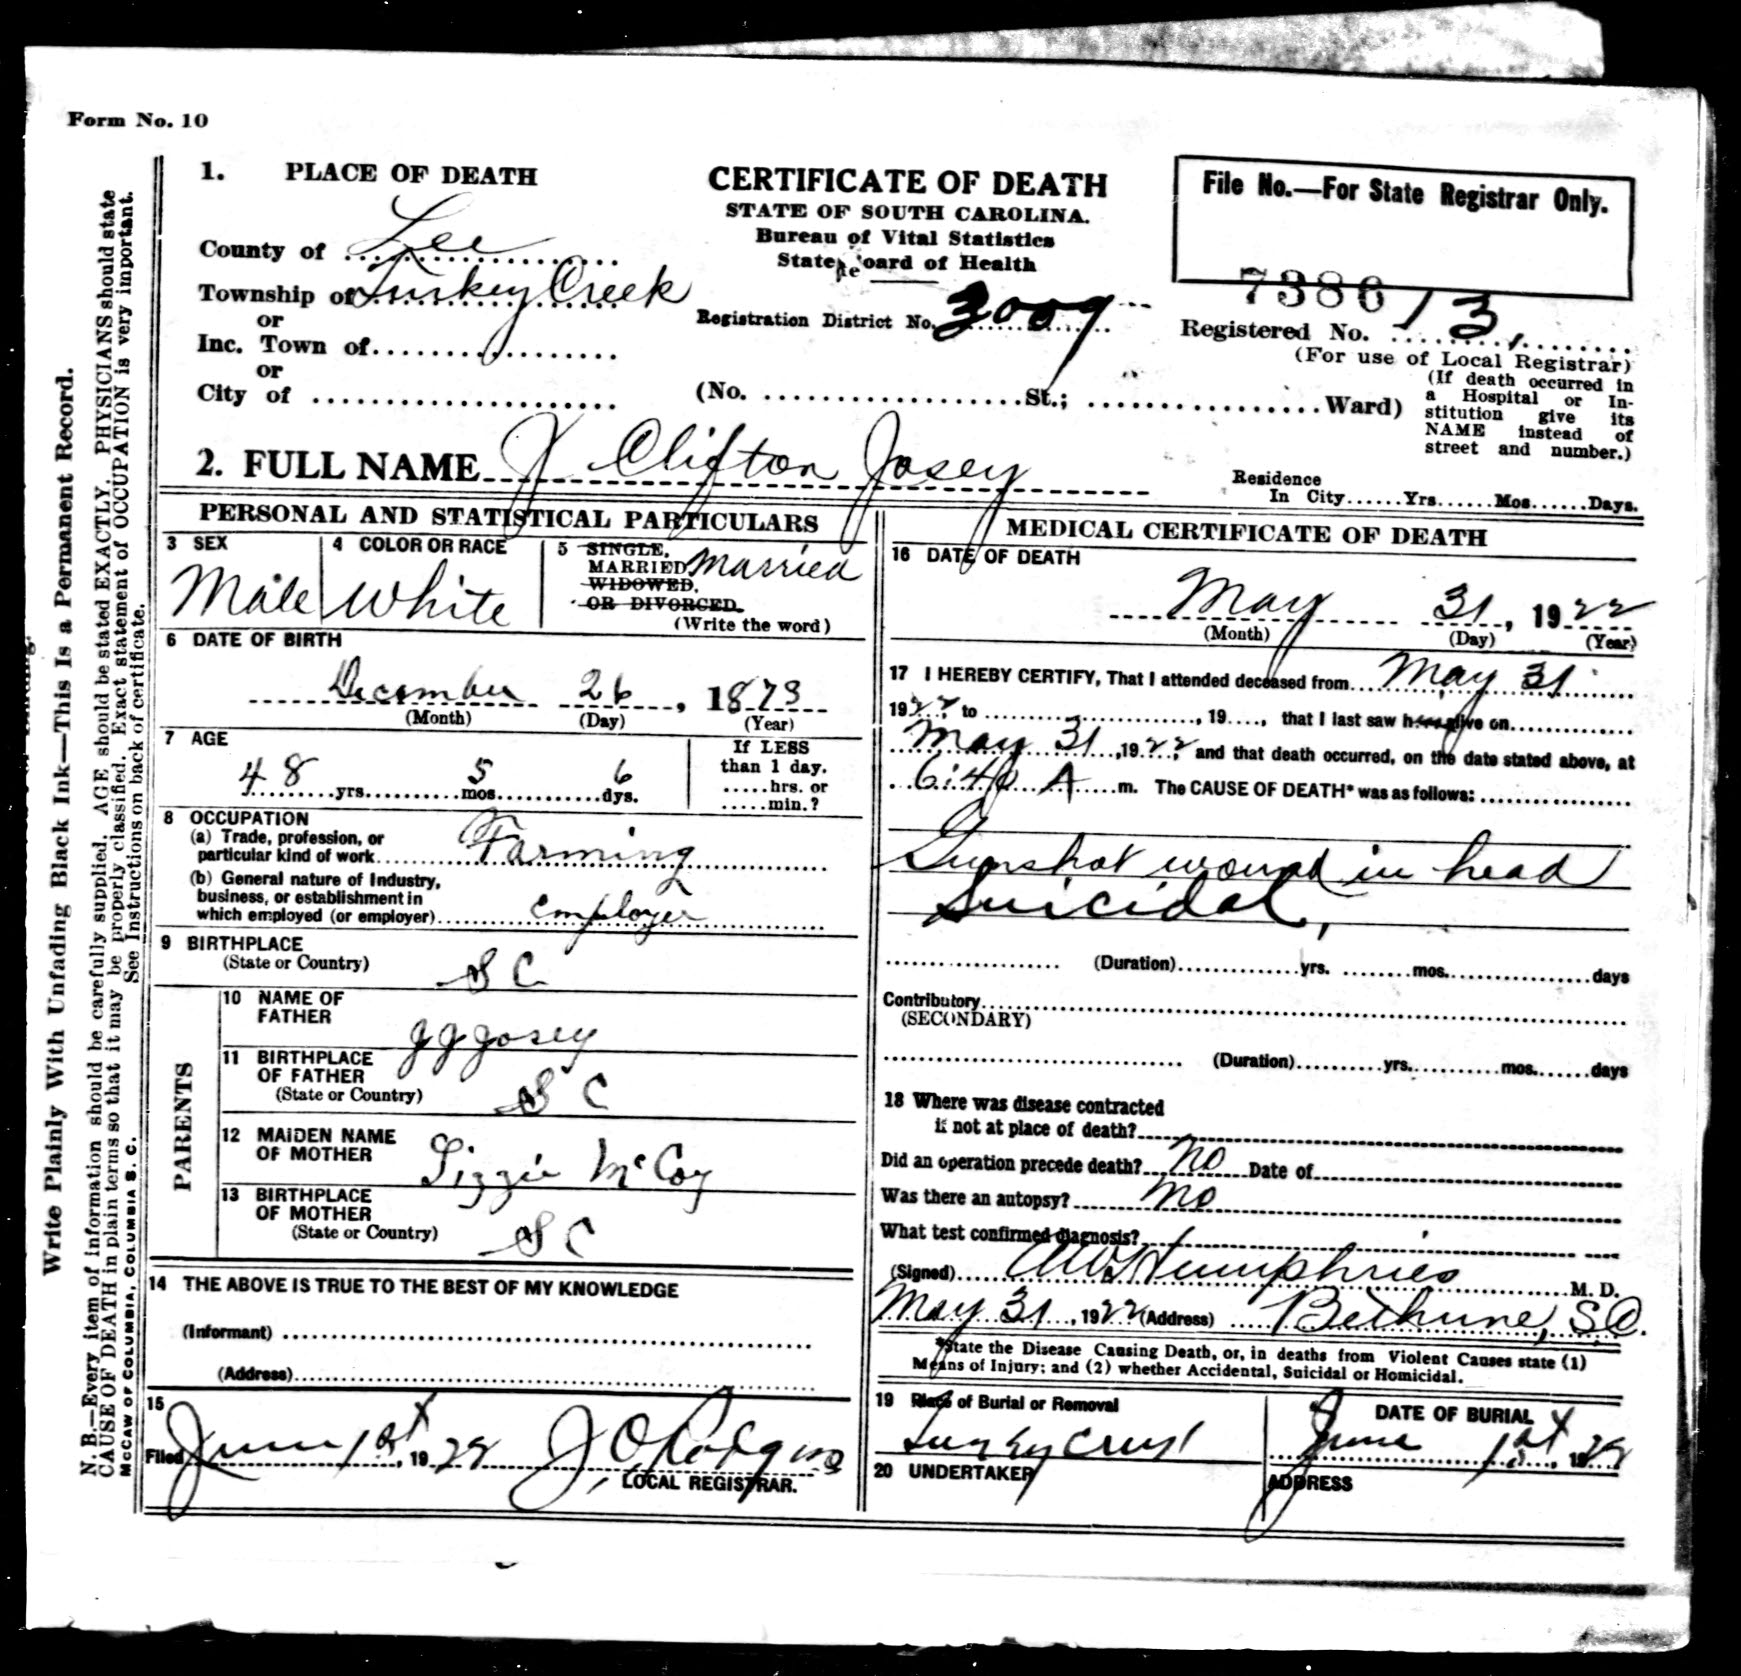 Form No. 10
1. PLACE OF DEATH
County of Lee
Township of Turkey Creek
or
Inc. Town of
or
City of
CERTIFICATE OF DEATH
STATE OF SOUTH CAROLINA.
Bureau of Vital Statistics
State Board of Health
Registration District No. 3009
File No.—For State Registrar Only.
7386
Registered No. 13
(For use of Local Registrar)
(No. St.; Ward)
(If death occurred in
a Hospital or In-
stitution give its
NAME instead of
street and number.)
2. FULL NAME J Clifton Josey
Residence
In City Yrs. Mos. Days.
PERSONAL AND STATISTICAL PARTICULARS
3 SEX
Male
4 COLOR OR RACE
White
5 SINGLE,
MARRIED, Married
WIDOWED,
OR DIVORCED.
(Write the word)
6 DATE OF BIRTH
December 26, 1873
(Month) (Day) (Year)
7 AGE
48 yrs. 5 mos. 6 dys.
If LESS
than 1 day.
hrs. or
min.?
8 OCCUPATION
(a) Trade, profession, or
particular kind of work Farming
(b) General nature of Industry,
business, or establishment in
which employed (or employer) employer
9 BIRTHPLACE
(State or Country) S C
PARENTS
10 NAME OF
FATHER J J Josey
11 BIRTHPLACE
OF FATHER
(State or Country) S C
12 MAIDEN NAME
OF MOTHER Lizzie McCoy
13 BIRTHPLACE
OF MOTHER
(State or Country) S C
14 THE ABOVE IS TRUE TO THE BEST OF MY KNOWLEDGE
(Informant)
(Address)
15
Filed June 1st, 1922
LOCAL REGISTRAR.
MEDICAL CERTIFICATE OF DEATH
16 DATE OF DEATH
May 31, 1922
(Month) (Day) (Year)
17 I HEREBY CERTIFY, That I attended deceased from May 31
1922, to , 19 , that I last saw h alive on
May 31, 1922, and that death occurred, on the date stated above, at
6:40 A m. The CAUSE OF DEATH* was as follows:
Gunshot wound in head
Suicidal,
(Duration) yrs. mos. days
Contributory
(SECONDARY)
(Duration) yrs. mos. days
18 Where was disease contracted
if not at place of death?
Did an operation precede death? no Date of
Was there an autopsy? no
What test confirmed diagnosis?
(Signed) Humphries M. D.
May 31, 1922 (Address) Bethune, S.C.
*State the Disease Causing Death, or, in deaths from Violent Causes state (1)
Means of Injury; and (2) whether Accidental, Suicidal or Homicidal.
19 Place of Burial or Removal
DATE OF BURIAL
June 1st, 1922
20 UNDERTAKER
ADDRESS
Write Plainly With Unfading Black Ink—This Is a Permanent Record.
N. B.—Every item of information should be carefully supplied. AGE should be stated EXACTLY. PHYSICIANS should state
CAUSE OF DEATH in plain terms so that it may be properly classified. Exact statement of OCCUPATION is very important.
See Instructions on back of certificate.
McCAW OF COLUMBIA, COLUMBIA S. C.